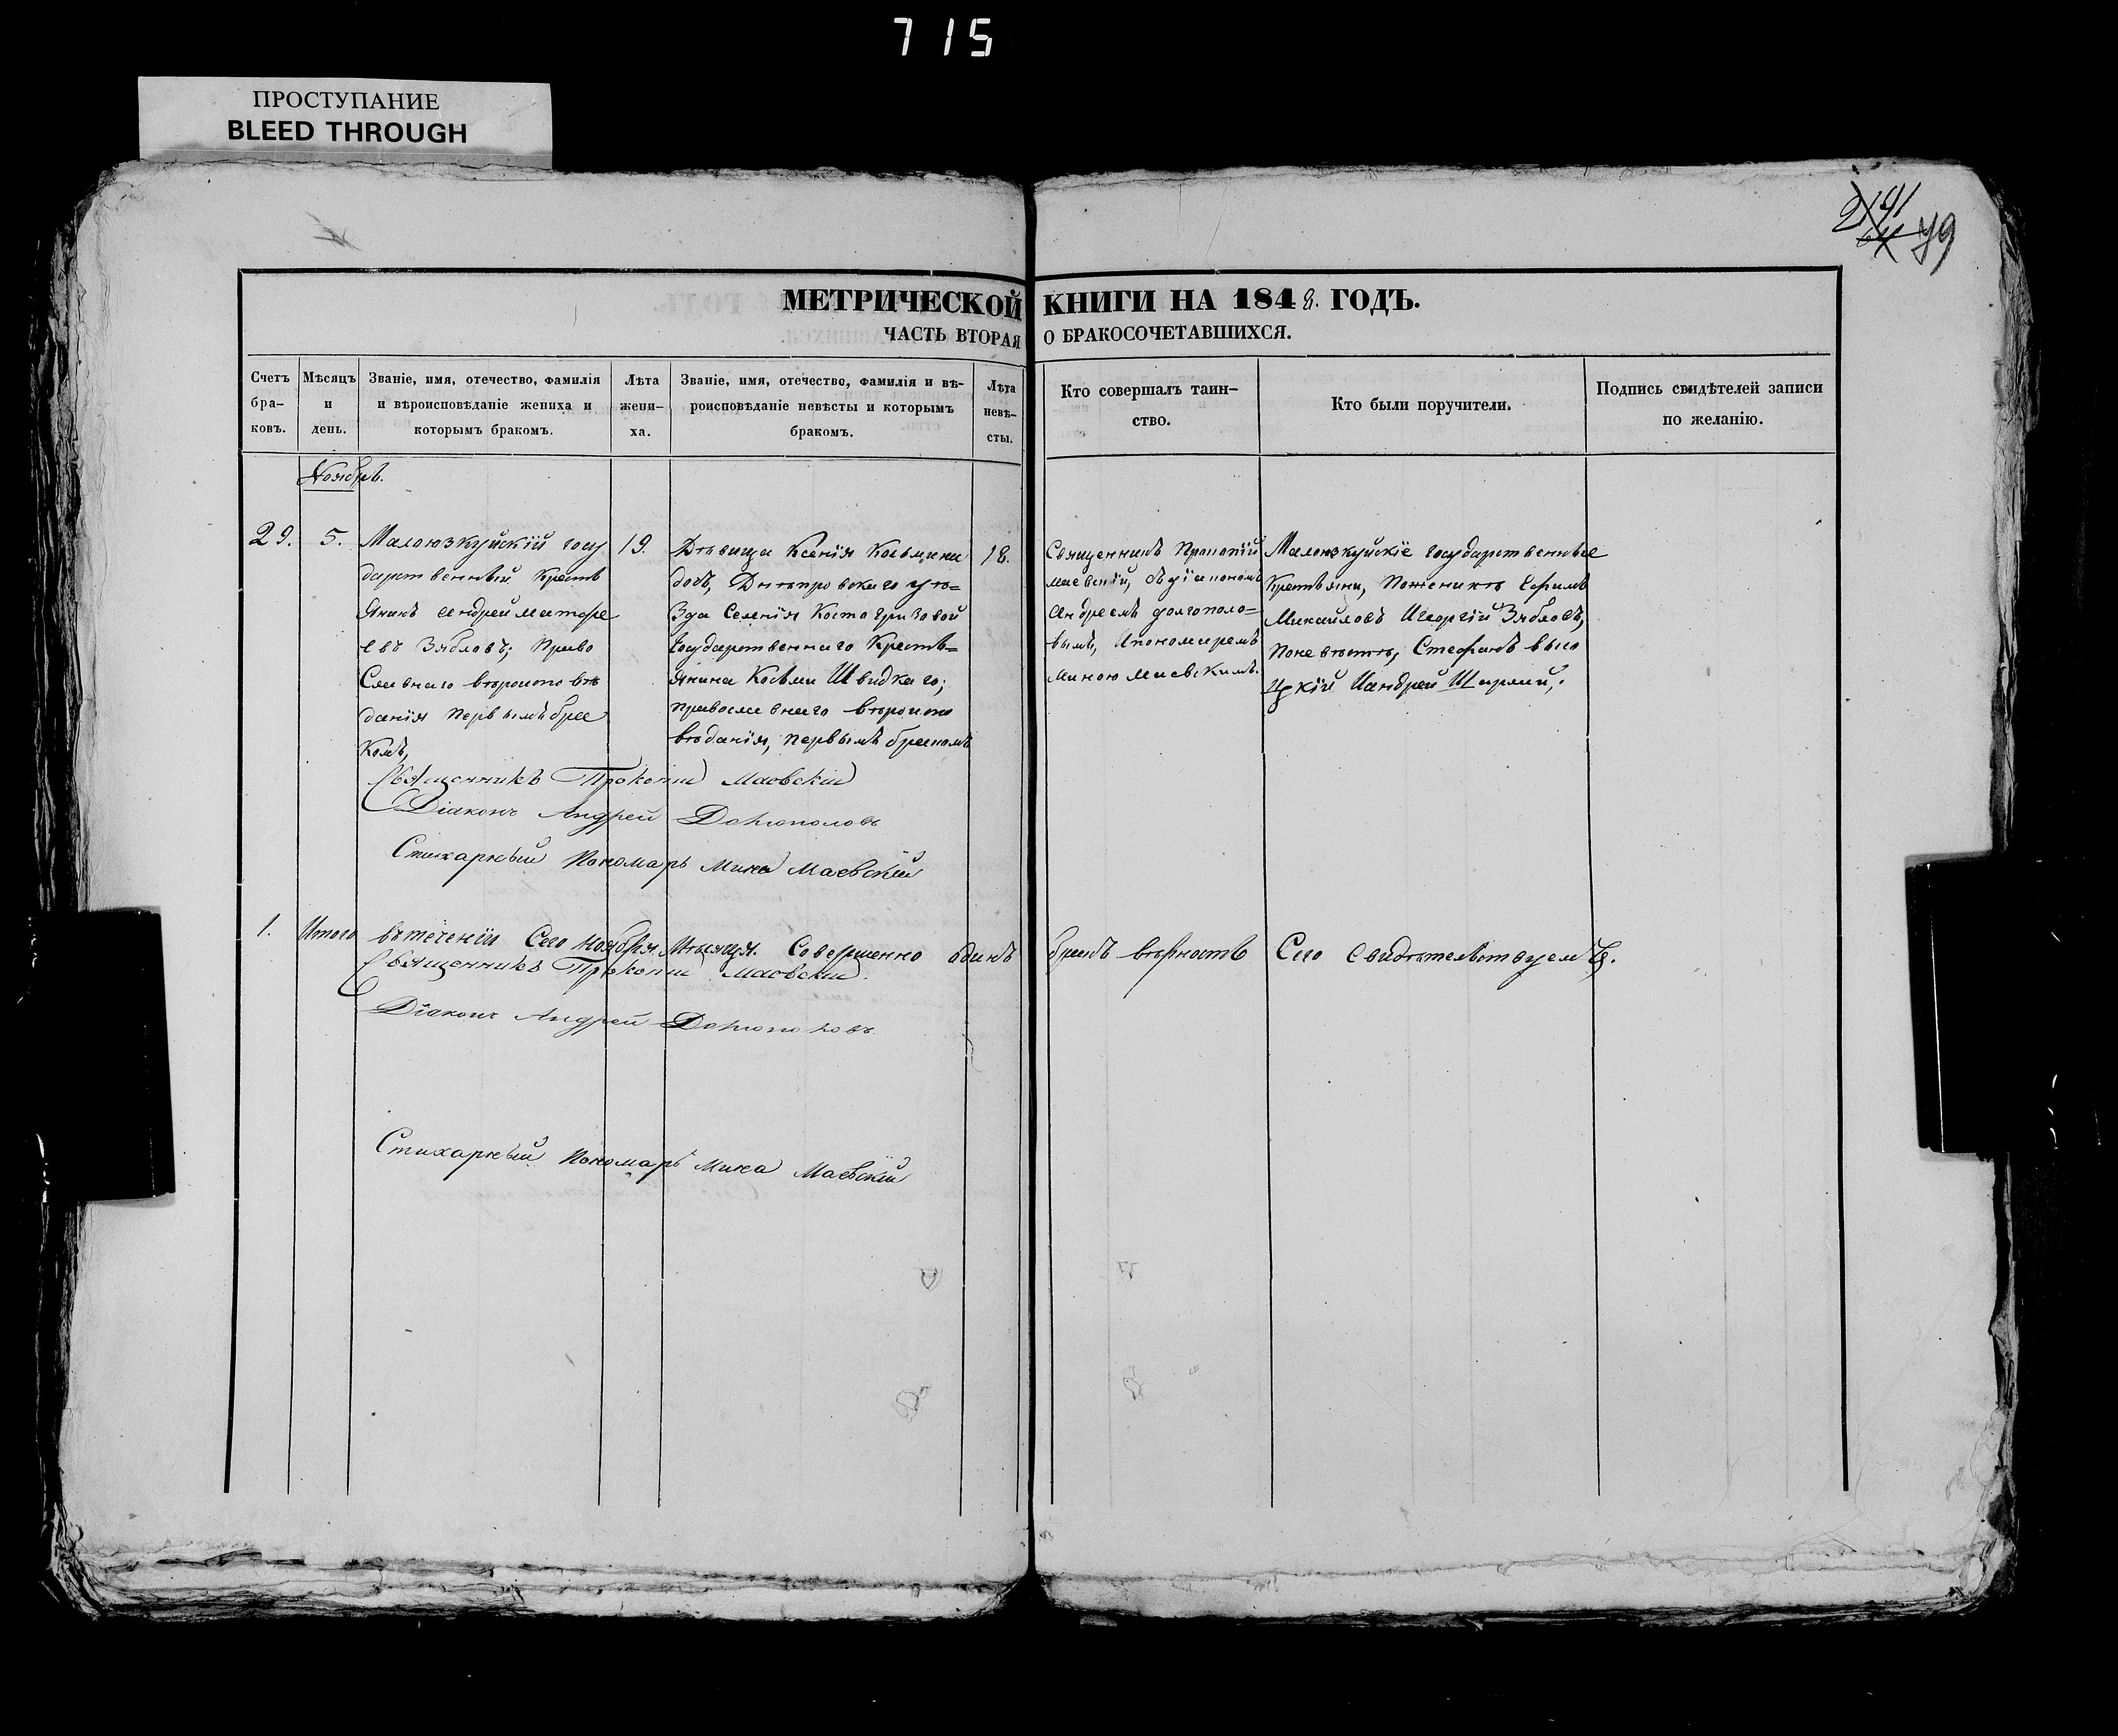 715
ПРОСТУПАНИЕ
BLEED THROUGH
79
МЕТРИЧЕСКОЙ КНИГИ НА 1848. ГОДЪ.
ЧАСТЬ ВТОРАЯ О БРАКОСОЧЕТАВШИХСЯ.
Счетъ
бра-
ковъ.
Мѣсяцъ
и
день.
Званіе, имя, отечество, фамилія
и вѣроисповѣданіе жениха и
которымъ бракомъ.
Лѣта
жени-
ха.
Званіе, имя, отечество, фамилія и вѣ-
роисповѣданіе невѣсты и которымъ
бракомъ.
Лѣта
невѣ-
сты.
Кто совершалъ таин-
ство.
Кто были поручители.
Подпись свидѣтелей записи
по желанію.
Ноябрь.
29.
5.
Малоюзкуйскій госу
дарственный Кресть
янинъ Андрей Матфе
евъ Зябловъ; Право
Славнаго вѣроисповѣ
данія первымъ бра
комъ,
19.
Дѣвица Ксенія Косьмина
дочь, Днѣпровскаго уѣ=
Зда Селенія Костогризовой
Государственнаго Кресть=
янина Косьмы Швидкаго;
православнаго вѣроиспо
вѣданія, первымъ бракомъ
18.
Священникъ Прокопій
Маевскій, съ діакономъ
Андреемъ Долгополо=
вымъ, и пономаремъ
Миною Маевскимъ.
Малоюзкуйскіе государственные
Крестьяни, По женихѣ Ефимъ
Михайловъ и Георгій Зябловъ,
По невѣстѣ, Стефанъ Высо
цкій и Андрей Шарый,.
Священникъ Прокопій Маевскій
Діаконъ Андрей Долгополовъ
Стихарный Пономарь Мина Маевскій
1. Итого въ теченіи Сего Ноября Мѣсяця. Совершенно одинъ бракъ вѣрность Сего Свидѣтельствуемъ.
Священникъ Прокопій Маевскій.
Діаконъ Андрей Долгополовъ
Стихарный Пономарь Мина Маевскій